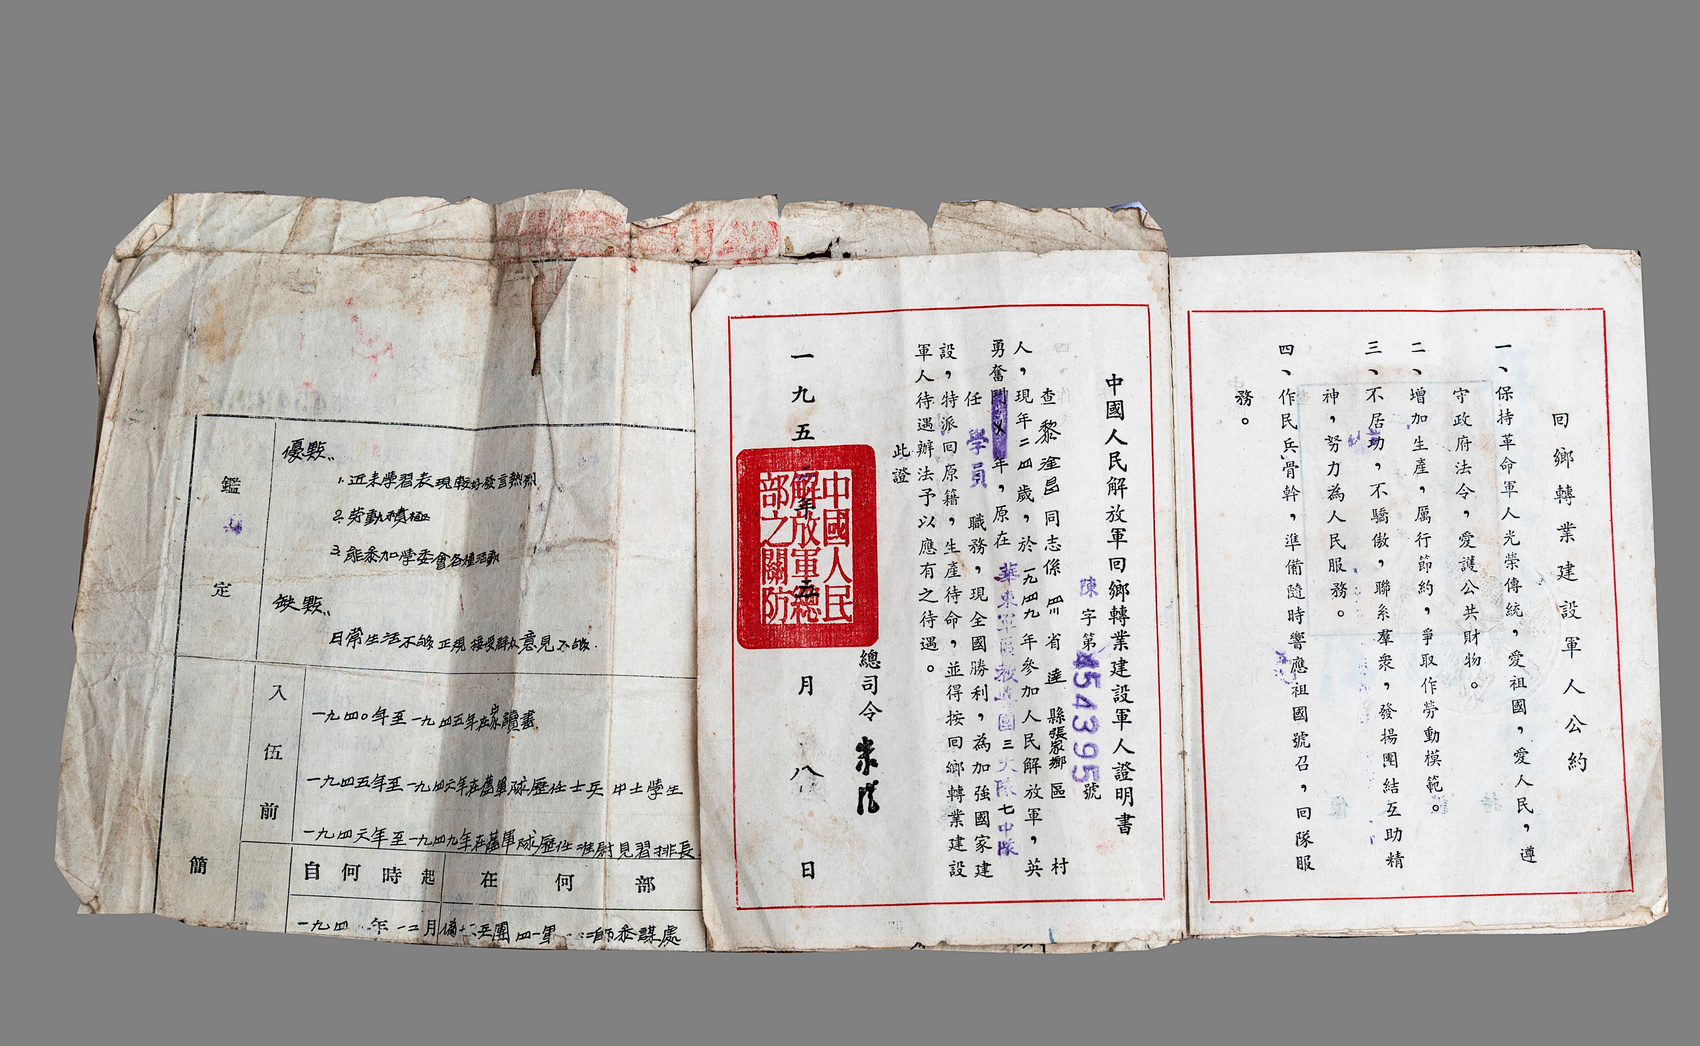 回鄉轉業建設軍人公約
一、保持革命軍人光榮傳統，愛祖國，愛人民，遵
守政府法令，愛護公共財物。
二、增加生產，厲行節約，爭取作勞動模範。
三、不居功，不驕傲，聯系羣衆，發揚團結互助精
神，努力為人民服務。
四、作民兵骨幹，準備隨時響應祖國號召，回隊服
務。
中國人民解放軍回鄉轉業建設軍人證明書
陳字第454395號
查黎淦昌同志係四川省達縣張家鄉區村
人，現年二四歲，於一九四九年參加人民解放軍，英
勇奮鬥年，原在華東軍區教導團三大隊七中隊
任學員職務，現全國勝利，為加強國家建
設，特派回原籍，生產待命，並得按回鄉轉業建設
軍人待遇辦法予以應有之待遇。
此證
總司令 朱德
一九五二年五月八日
中國人民
解放軍總
部之關防
鑑定
優點：
1. 近來學習表現較好發言熱烈
2. 勞動積極
3. 能參加學委會各種活動
缺點：
日常生活不夠正規接受群众意見不夠.
入伍前
一九四〇年至一九四五年在家讀書
一九四五年至一九四六年在舊軍隊歷任士兵 中士學生
一九四六年至一九四九年在舊軍隊歷任准尉見習排長
簡
自何時起 在何部
一九四 年一二月 兵團四一軍 師參謀處